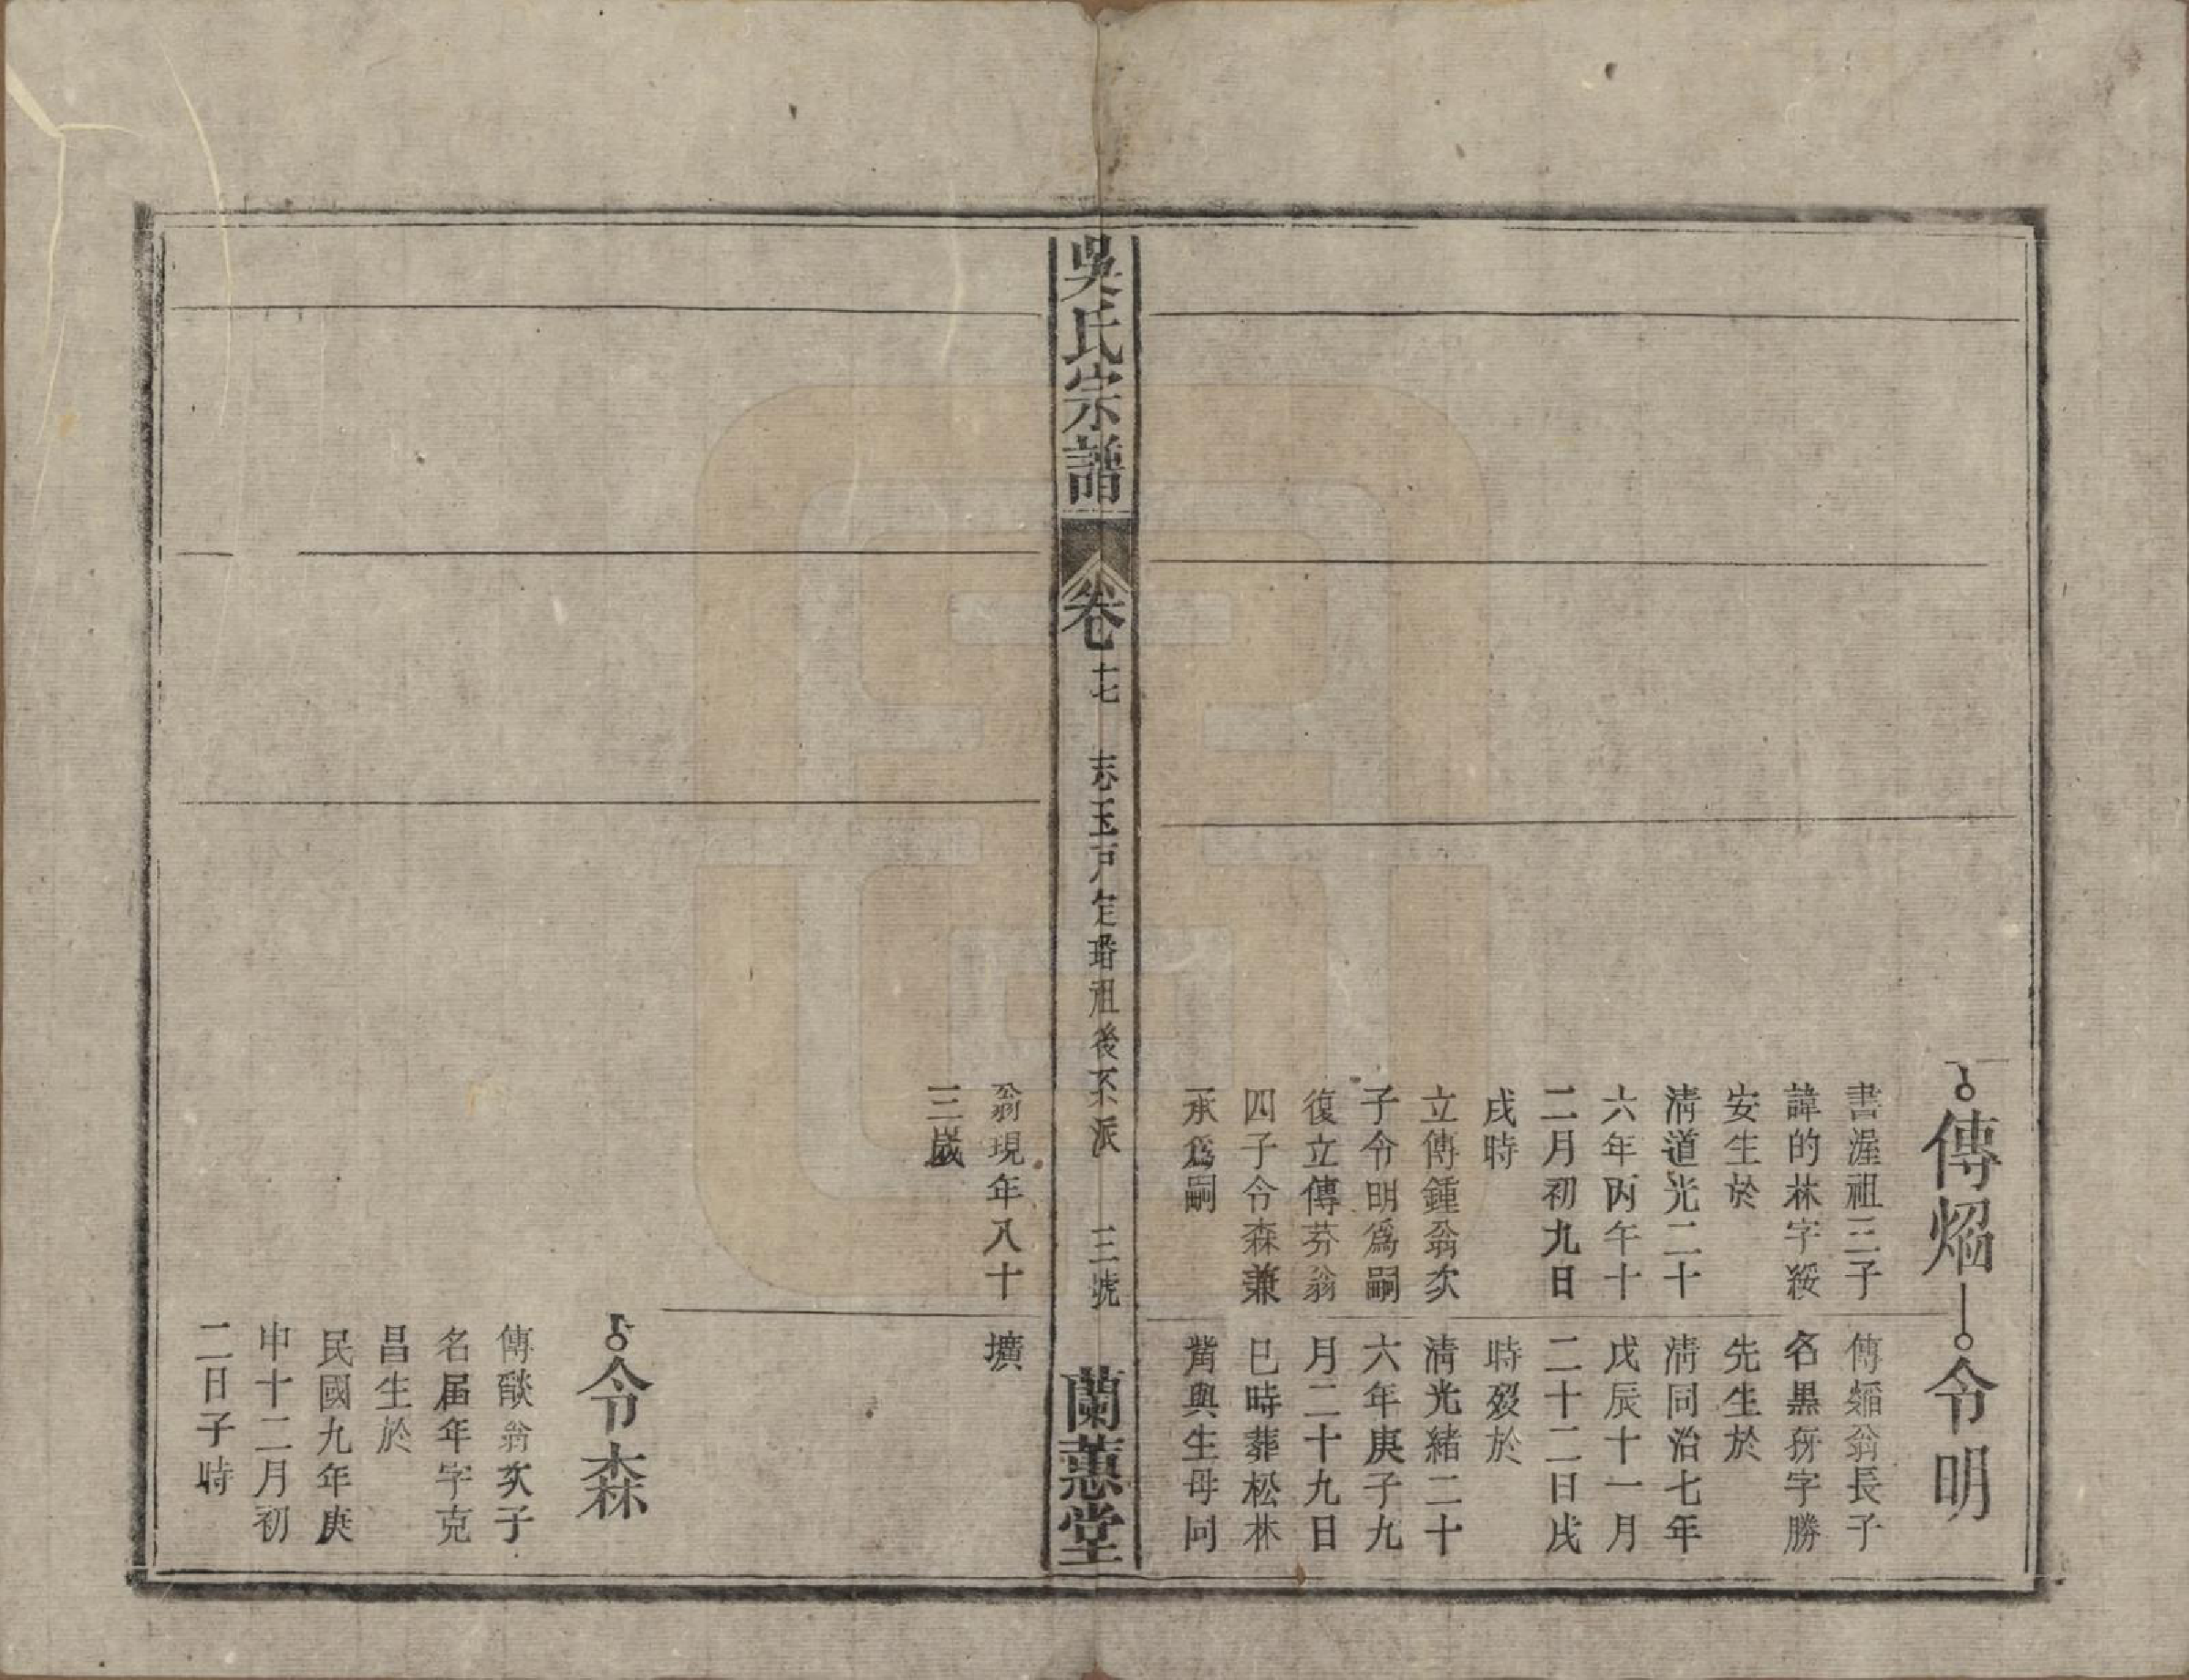 傳焰
書渥祖三子
諱的棥字綏
安生於
淸道光二十
六年丙午十
二月初九日
戌時
立傳鍾翁次
子令明爲嗣
復立傳芬翁
四子令森兼
承爲嗣
翁現年八十
三歲
令明
傳翁長子
名黑字勝
先生於
淸同治七年
戊辰十一月
二十二日戌
時歿於
淸光緒二十
六年庚子九
月二十九日
巳時葬松林
嵆與生母同
壙
吳氏宗譜
卷
十七
志玉戸
祖後丕派
三號
蘭蕙堂
令森
傳燄翁次子
名届年字克
昌生於
民國九年庚
申十二月初
二日子時